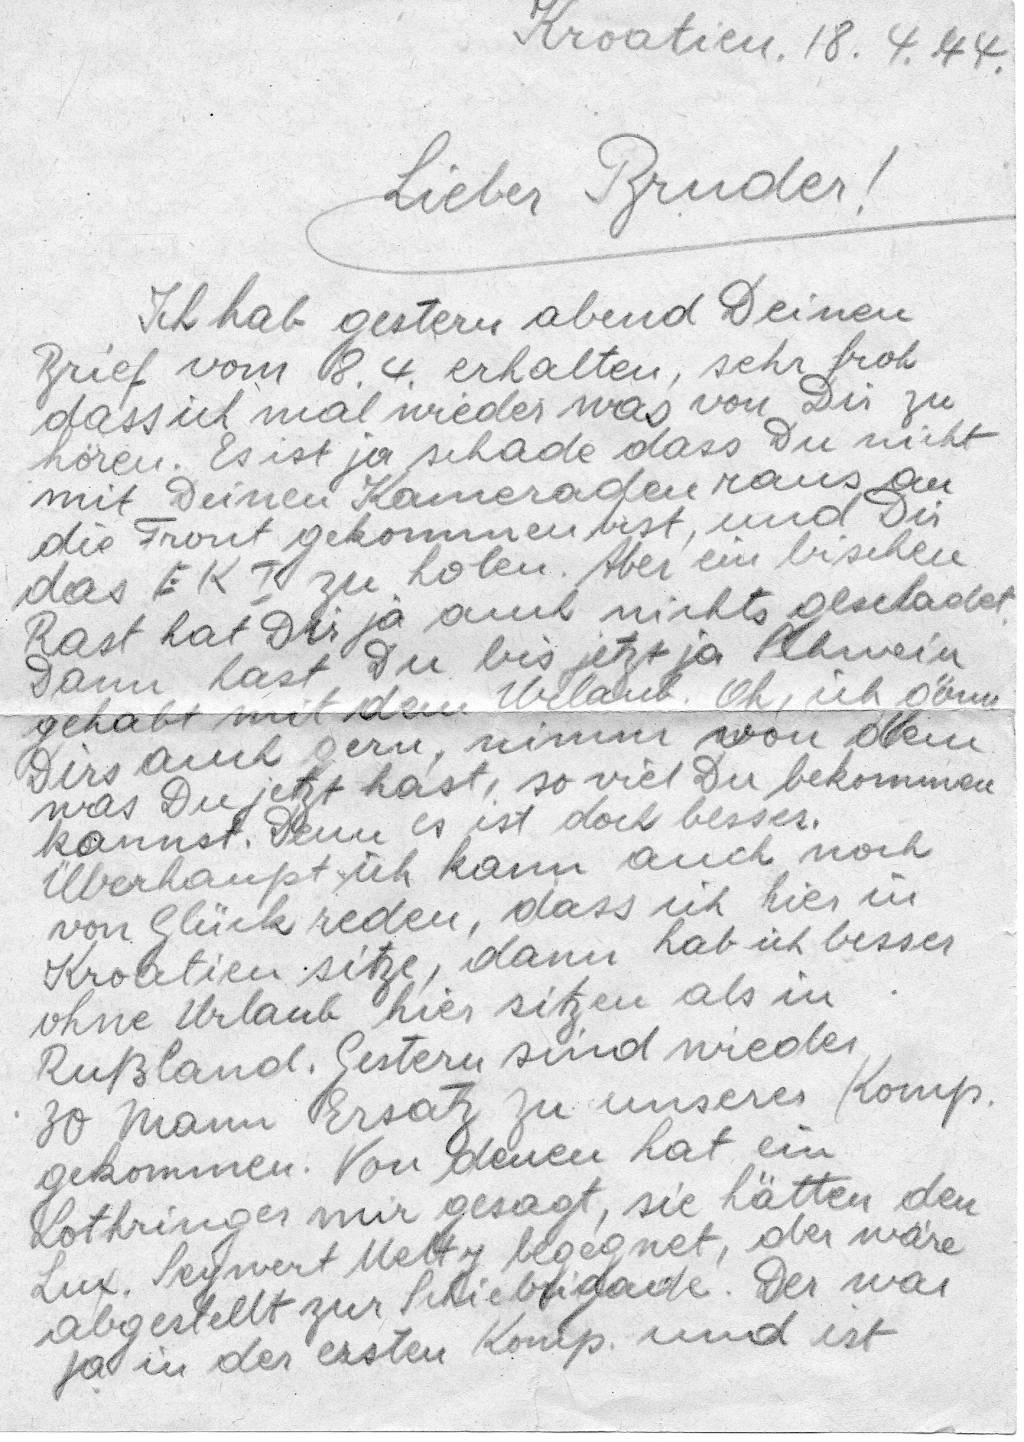 Kroatien. 18. 4. 44.
Lieber Bruder!
Ich hab gestern abend Deinen
Brief vom 8. 4. erhalten, sehr froh
dass ich mal wieder was von Dir zu
hören. Es ist ja schade dass Du nicht
mit Deinen Kameraden raus an
die Front gekommen bist, und Dir
das EK I zu holen. Aber ein bischen
Rast hat Dir ja auch nichts geschadet.
Dann hast Du bis jetzt ja Schwein
gehabt mit dem Urlaub. Oh, ich gönn
Dirs auch gern, nimm von dem
was Du jetzt hast, so viel Du bekommen
kannst. Denn es ist doch besser.
Überhaupt ich kann auch noch
von Glück reden, dass ich hier in
Kroatien sitze, dann hab ich besser
ohne Urlaub hier sitzen als in
Rußland. Gestern sind wieder
30 Mann Ersatz zu unserer Komp.
gekommen. Von denen hat ein
Lothringer mir gesagt, sie hätten den
Lux. Seywert begegnet, der wäre
abgestellt zur Schiebrigade. Der war
ja in der ersten Komp. und ist